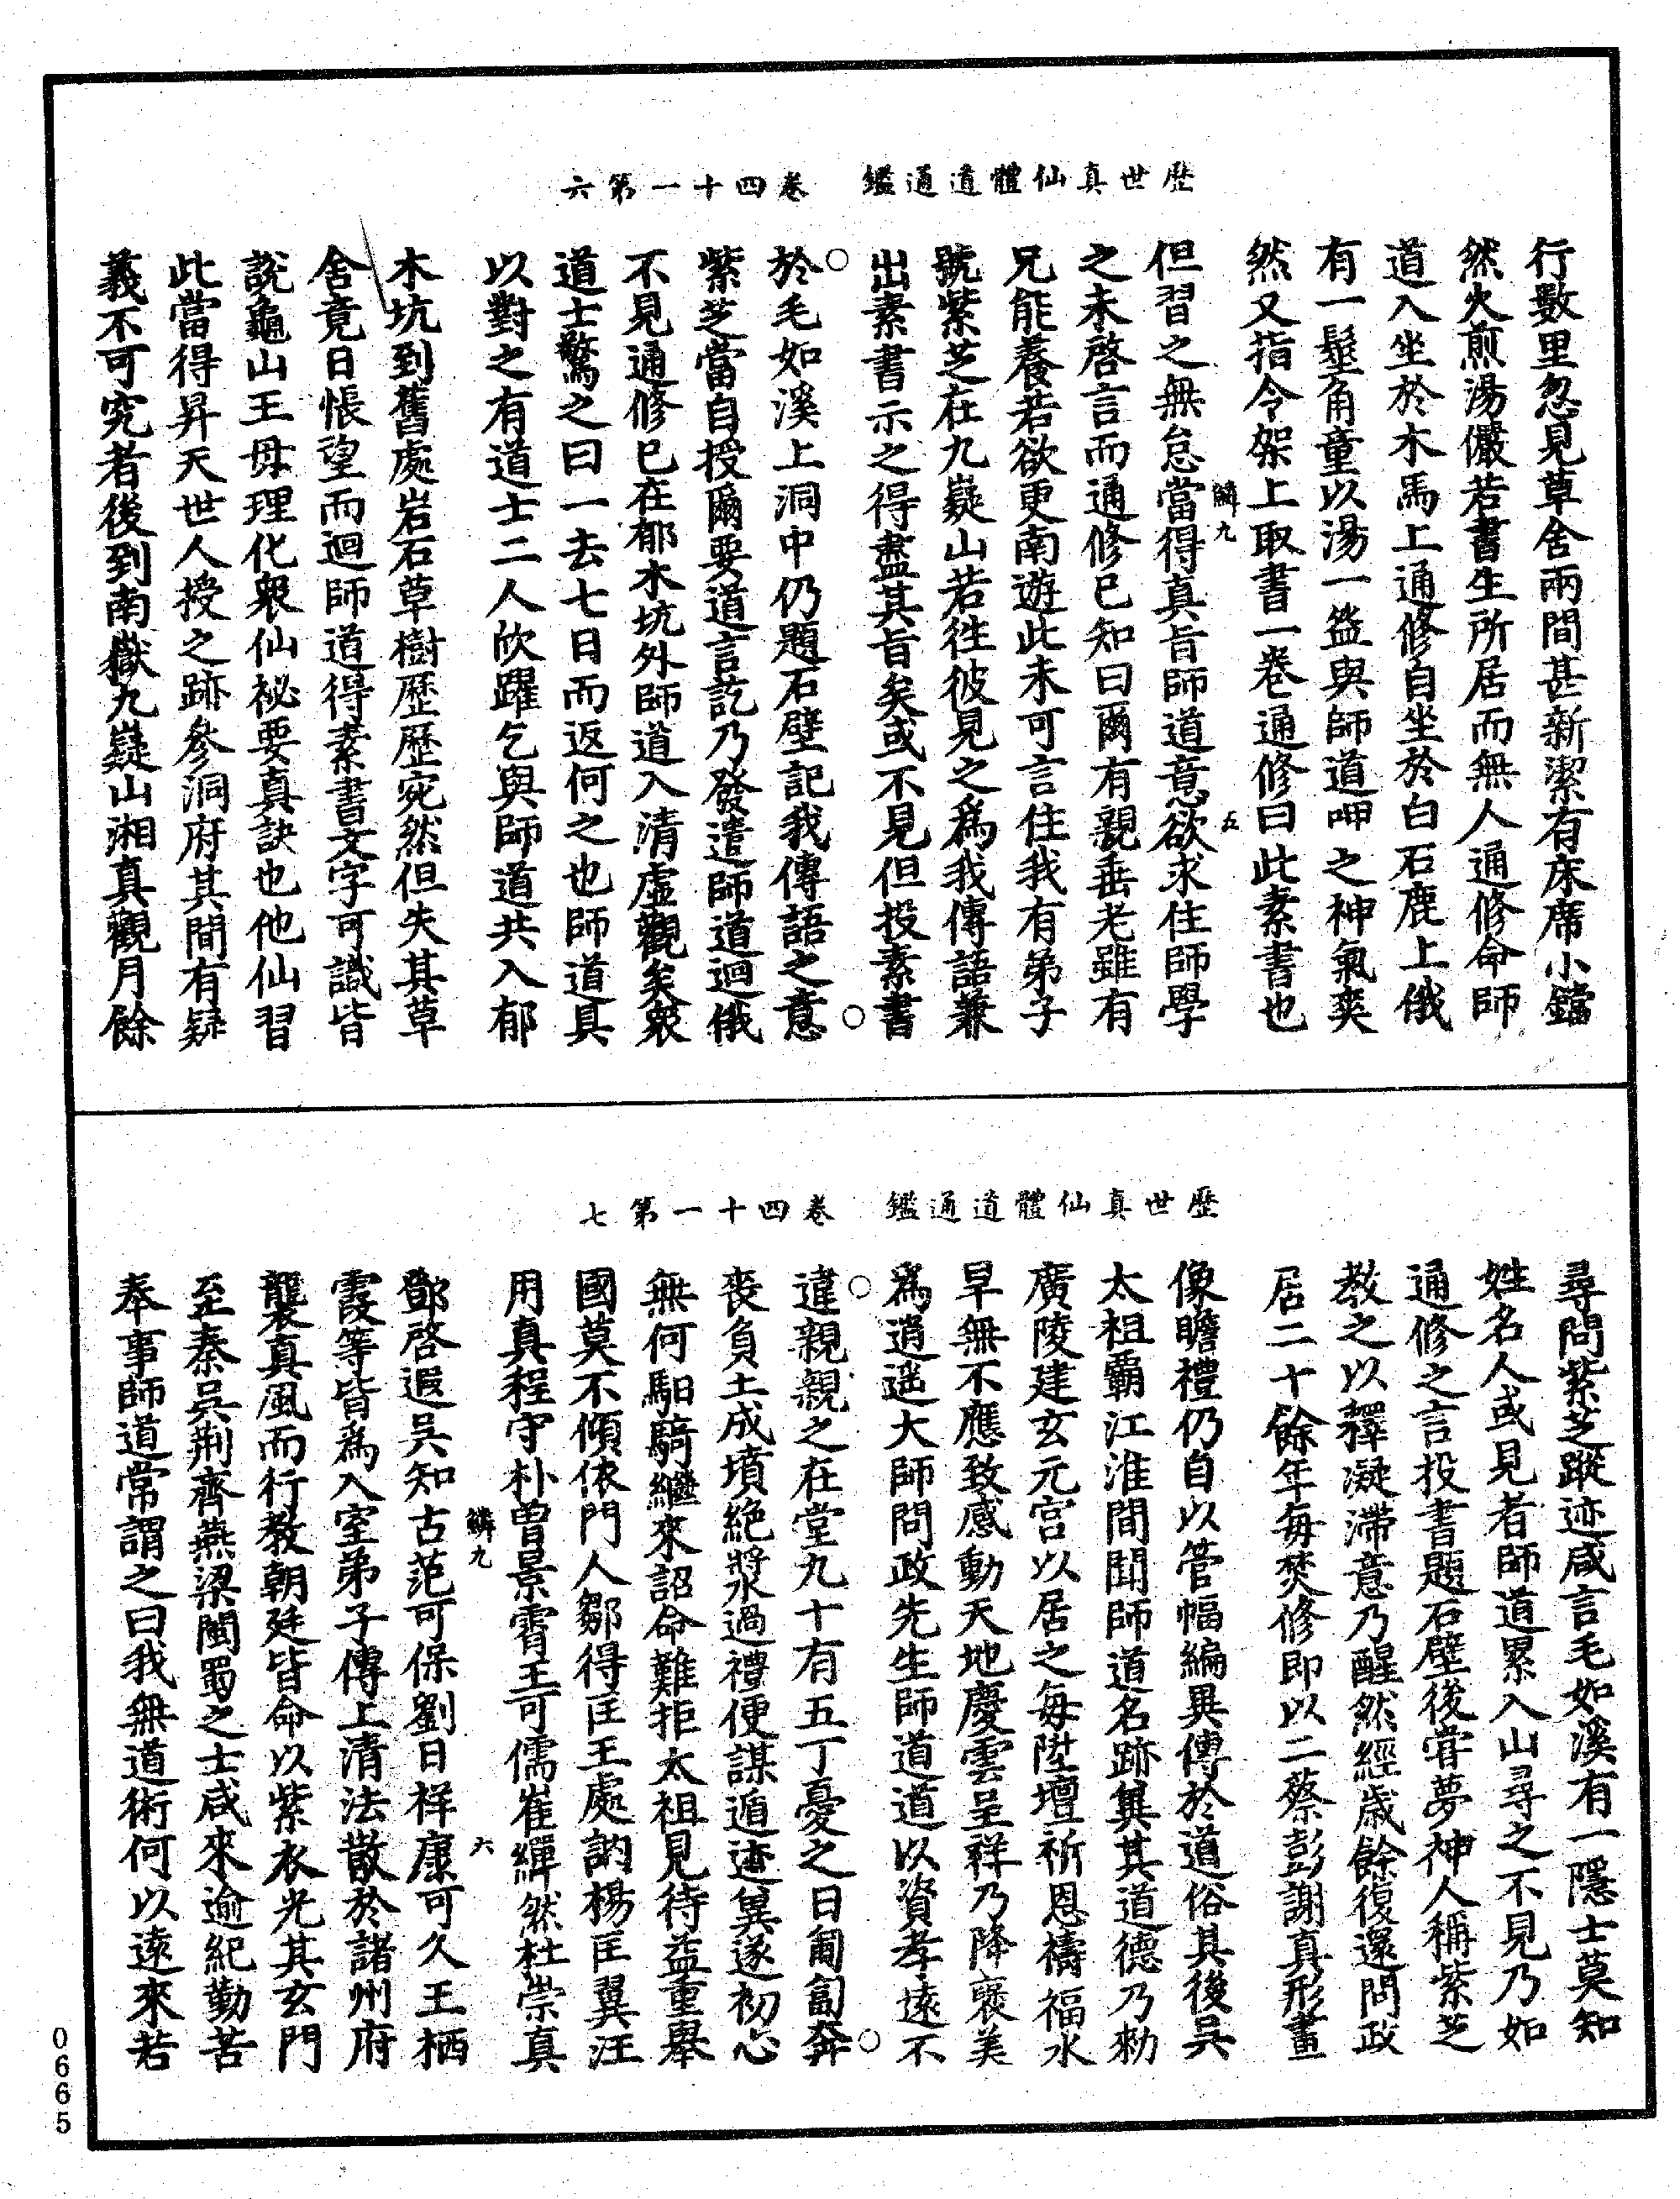 歷世真仙體道通鑑　卷四十一第六
行數里忽見草舍兩間甚新潔有床席小鐺
然火煎湯儼若書生所居而無人通修命師
道入坐於木馬上通修自坐於白石鹿上俄
有一髽角童以湯一盌與師道呷之神氣爽
然又指令架上取書一卷通修曰此素書也
鱗九　五
但習之無怠當得真旨師道意欲求住師學
之未啓言而通修已知曰爾有親垂老雖有
兄能養若欲更南遊此未可言住我有弟子
號紫芝在九嶷山若往彼見之為我傳語兼
出素書示之得盡其旨矣或不見但投素書
於毛如溪上洞中仍題石壁記我傳語之意
紫芝當自授爾要道言訖乃發遣師道迴俄
不見通修已在郁木坑外師道入清虛觀矣眾
道士驚之曰一去七日而返何之也師道具
以對之有道士二人欣躍乞與師道共入郁
木坑到舊處岩石草樹歷歷宛然但失其草
舍竟日悵望而迴師道得素書文字可識皆
說龜山王母理化眾仙祕要真訣也他仙習
此當得昇天世人授之跡參洞府其間有疑
義不可究者後到南嶽九嶷山湘真觀月餘
歷世真仙體道通鑑　卷四十一第七
尋問紫芝蹤迹咸言毛如溪有一隱士莫知
姓名人或見者師道累入山尋之不見乃如
通修之言投書題石壁後甞夢神人稱紫芝
教之以釋凝滯意乃醒然經歲餘復還問政
居二十餘年每焚修即以二蔡彭謝真形畫
像瞻禮仍自以管幅編異傳於道俗其後吳
太祖霸江淮間聞師道名跡冀其道德乃勑
廣陵建玄元宮以居之每陞壇祈恩禱福水
旱無不應致感動天地慶雲呈祥乃降褒美
為逍遥大師問政先生師道道以資孝遠不
違親親之在堂九十有五丁憂之日匍匐奔
喪負土成墳絕漿過禮便謀遁迹冀遂初心
無何馹騎繼來詔命難拒太祖見待益重舉
國莫不傾依門人鄒得匡王處訥楊匡翼汪
用真程守朴曾景霄王可儒崔繟然杜崇真
鱗九　六
鄧啓遐吳知古范可保劉日祥康可久王栖
霞等皆為入室弟子傳上清法散於諸州府
襲真風而行教朝廷皆命以紫衣光其玄門
至秦吳荆齊燕梁閩蜀之士咸來逾紀勤苦
奉事師道常謂之曰我無道術何以遠來若
0665